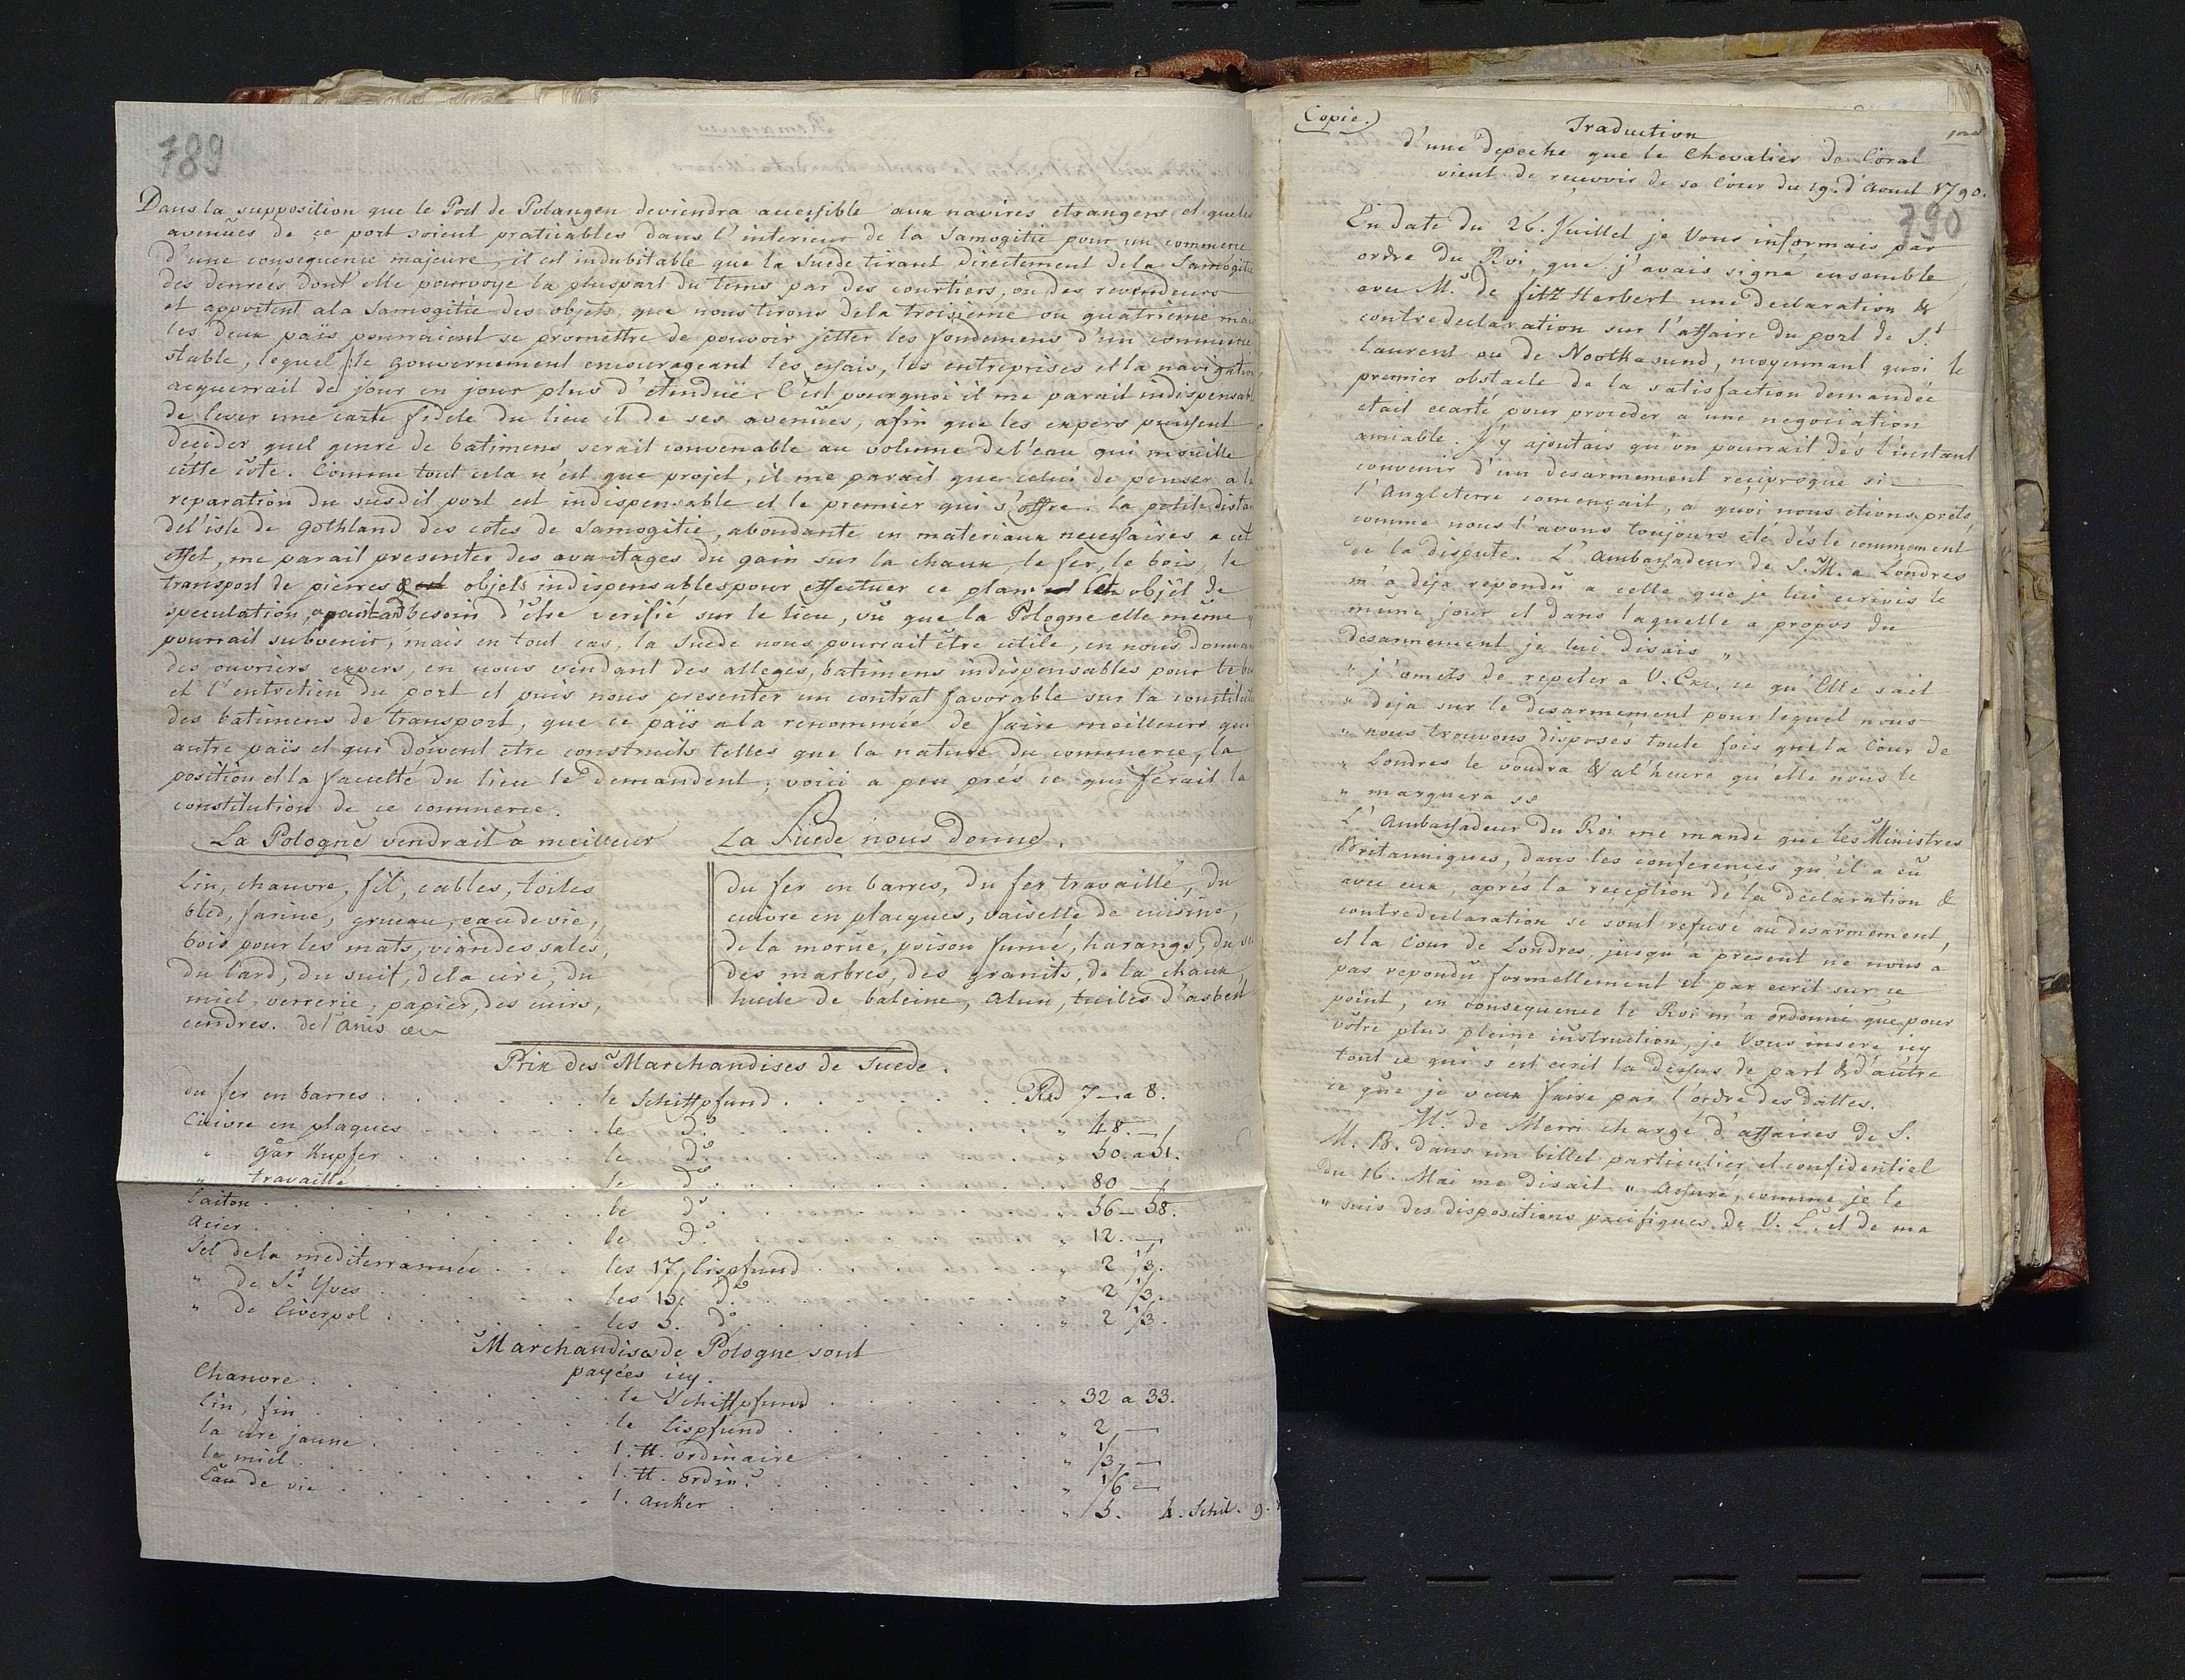 789
Dans la supposition que le Port de Polangen deviendra accessible aux navires etrangers et que les
avenües de ce port soient praticables dans l'interieur de la Samogitie pour un commerce
d'une consequence majeure, il est indubitable que la Suede tirant directement de la Samogitie
des denreés dont elle pourvoye la pluspart du tems par des courtiers, ou des revendeurs
et apportent a la Samogitie des objets, que nous tirons de la troisieme ou quatrieme main
les deux païs pourraient se promettre de pouvoir jetter les fondemens d'un commerce
stable, lequel le gouvernement encourageant les essais, les entreprises et la navigation
acquerrait de jour en jour plus d'étenduë. C'est pourquoi il me parait indispensable
de lever une carte fidele du lieu et de ses avenües, afin que les expers puissent
decider quel genre de batimens serait convenable au volume de l'eau qui mouille
cétte côte. Comme tout cela n'est que projet, il me parait que celui de penser a la
reparation du susdit port est indispensable et le premier qui s'offre. la petite dista
de l'isle de Gothland des cotes de Samogitie, abondante en materiaux necessaires a cet
effet, me parait presenter des avantages du gain sur la chaux, le fer, le bois, le
transport de pierres & objets indispensables pour effectuer ce plan objèt de
speculation, besoin d'être verifié sur le lieu, vû que la Pologne elle même y
pourrait subvenir, mais en tout cas, la Suede nous pourrait être utile, en nous donnan
des ouvriers expers, en nous vendant des alleges, batimens indispensables pour le bu
et l'entretien du port et puis nous presenter un contrat favorable sur la
des batimens de transport, que ce païs a la renommée de faire meilleurs que
autre païs et qui doivent etre construits telles que la nature du commerce, la
position et la faculté du lieu le demandent; voici a peu prés ce qui ferait la
constitution de ce commerce.
La Pologne vendrait à meilleur
Lin, chanvre, fil, cables, toiles
bled, farine, grueau, eau de vie,
bois pour les mats, viandes sales,
du lard, du suif, de la cire, du
miel, verrerie, papier, des cuirs,
cendres. de l'anis
La Suede nous donne.
du fer en barres, du fer travaillé, du
cuivre en plaques, vaiselle de cuisine,
de la morüe, poison fumé, harangs, du
des marbres, des granits, de la chaux
huile de baleine, alun, tuiles d'asbest
Prix des Marchandises de Suede.
du fer en barres . . . . . . le Schiffpfund . . . . . . Rxd 7 — a 8.
Cuivre en plaques . . . . . . le d.° . . . . . . " 48. —
" går Kupfer . . . . . . le d.° . . . . . . " 50. a 51.
" travaillé . . . . . . le d.° . . . . . . " 80 —
Laiton . . . . . . le d.° . . . . . . " 56 — 58.
Acier . . . . . . le d.° . . . . . . " 12. —
Sel de la mediterrannée . . . les 17, Lispfund . . . . . . " 2 1/3.
" de St Yves . . . . . . les 15; d.° . . . . . . " 2 1/3.
" de Liverpol . . . . . . les 5. d.° . . . . . . " 2 1/3.
Marchandises de Pologne sont
payées icy.
Chanvre . . . . . . le Schiffpfund . . . . . . " 32 a 33.
Lin, fin . . . . . . le Lispfund . . . . . . " 2 —
la cire jaune . . . . . . 1. ℔. ordinaire . . . . . . " 1/3, —
le miel . . . . . . 1. ℔. ordin.° . . . . . . " 1/6 —
Eau de vie . . . . . . 1. anker . . . . . . " 5. 4. Schil. 9.
Copie.)
Traduction
d'une depeche que le Chevalier de Coral
vient de reçevoir de sa Cour du 19. d'Aout 1790.
790
En date du 26. Juillet je Vous informais par
ordre du Roi, que j'avais signé ensemble
avec Mr. de fitz Herbert une declaration &
contredeclaration sur l'affaire du port de St
Laurent ou de Nootkasund, moyennant quoi le
premier obstacle de la satisfaction demandée
etait ecarté pour proceder a une negociation
amiable. J'y ajoutais qu'on pourrait dés l'instant
convenir d'un desarmement reciproque si
l'Angleterre començait, a quoi nous etions prêts,
comme nous l'avons toujours été dés le commement
de la dispute. L'Ambassadeur de S. M. a Londres
m'a deja repondû a celle que je lui ecrivis le
même jour et dans laquelle a propos du
desarmement je lui disais "
" j'omets de repeter a V. Exc. ce qu'Elle sait
" deja sur le desarmement pour lequel nous
" nous trouvons disposes toute fois que la Cour de
" Londres le voudra & a l'heure qu'elle nous le
" marquera "
L'Ambassadeur du Roi me mande que les Ministres
Britanniques, dans les conferençes qu'il a eu
avec eux, aprés la reçeption de la declaration &
contredeclaration se sont refusé au desarmement,
et la Cour de Londres, jusqu'a present ne nous a
pas repondû formellement et par ecrit sur ce
point, en consequence le Roi m'a ordonné que pour
vôtre plus pleine instruction, je Vous insere icy
tout ce qui s'est ecrit la dessus de part & d'autre
ce que je veux faire par l'ordre des dattes.
Mr. de Merri chargé d'affaires de S.
M. B. dans un billet particulier et confidentiel
du 16. Mai me disait " Assuré, comme je le
" suis des dispositions pacifiques de V. E. et de ma